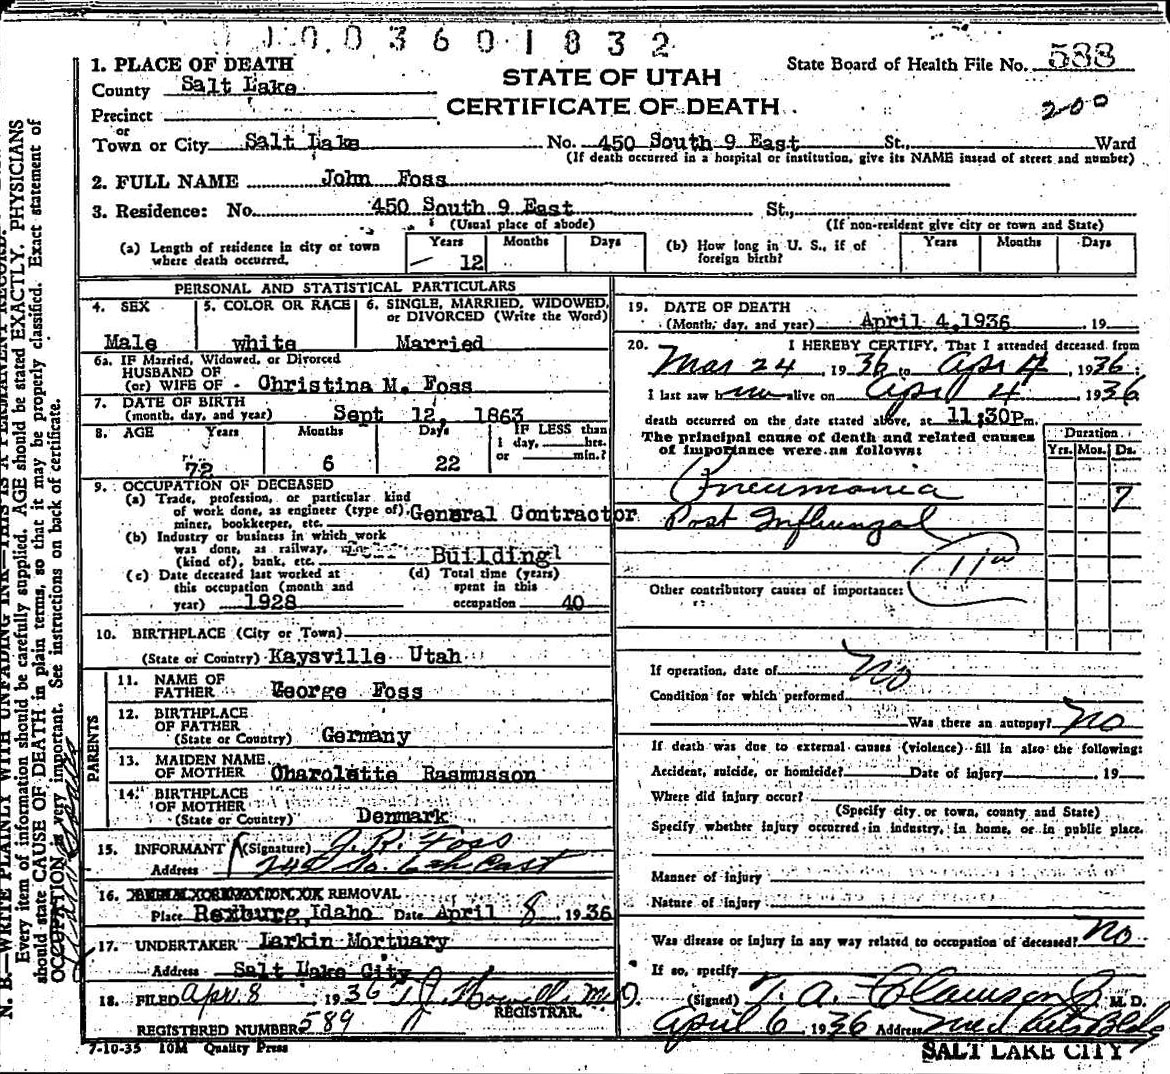 1003601832
1. PLACE OF DEATH
County Salt Lake
STATE OF UTAH
CERTIFICATE OF DEATH
State Board of Health File No. 588
200
Precinct
or
Town or City Salt Lake No. 450 South 9 East St., Ward
(If death occurred in a hospital or institution, give its NAME instead of street and number)
2. FULL NAME John Foss
3. Residence: No. 450 South 9 East St.,
(Usual place of abode) (If non-resident give city or town and State)
(a) Length of residence in city or town where death occurred. Years 12 Months Days
(b) How long in U. S., if of foreign birth? Years Months Days
PERSONAL AND STATISTICAL PARTICULARS
4. SEX Male
5. COLOR OR RACE white
6. SINGLE, MARRIED, WIDOWED, or DIVORCED (Write the Word) Married
6a. IF Married, Widowed, or Divorced
HUSBAND OF
(or) WIFE OF Christina M. Foss
7. DATE OF BIRTH
(month, day, and year) Sept 12, 1863
8. AGE Years 72 Months 6 Days 22
IF LESS than 1 day, hrs. or min.?
9. OCCUPATION OF DECEASED
(a) Trade, profession, or particular kind of work done, as engineer (type of), miner, bookkeeper, etc. General Contractor
(b) Industry or business in which work was done, as railway, (kind of), bank, etc. Building
(c) Date deceased last worked at this occupation (month and year) 1928
(d) Total time (years) spent in this occupation 40
10. BIRTHPLACE (City or Town)
(State or Country) Kaysville Utah
PARENTS
11. NAME OF FATHER George Foss
12. BIRTHPLACE OF FATHER
(State or Country) Germany
13. MAIDEN NAME OF MOTHER Charolette Rasmusson
14. BIRTHPLACE OF MOTHER
(State or Country) Denmark
15. INFORMANT (Signature) J. R. Foss
Address So. 6th East
16. REMOVAL
Place Rexburg, Idaho Date April 8 1936
17. UNDERTAKER Larkin Mortuary
Address Salt Lake City
18. FILED Apr 8, 1936 Howells M.D.
REGISTRAR.
REGISTERED NUMBER 589
7-10-35 10M Quality Press
19. DATE OF DEATH
(Month, day, and year) April 4, 1936, 19
20. I HEREBY CERTIFY, That I attended deceased from
Mar 24, 1936 to Apr 4, 1936;
I last saw alive on Apr 4, 1936
death occurred on the date stated above, at 11;30Pm.
The principal cause of death and related causes of importance were as follows:
Duration
Yrs. Mos. Ds.
Pneumonia 7
Post Influenzal
Other contributory causes of importance:
If operation, date of No
Condition for which performed
Was there an autopsy? No
If death was due to external causes (violence) fill in also the following:
Accident, suicide, or homicide? Date of injury 19
Where did injury occur?
(Specify city or town, county and State)
Specify whether injury occurred in industry, in home, or in public place.
Manner of injury
Nature of injury
Was disease or injury in any way related to occupation of deceased? No
If so, specify
(Signed) T. A. Clawson Jr M. D.
April 6, 1936 Address Med Arts Bldg
SALT LAKE CITY
N. B.—WRITE PLAINLY WITH UNFADING INK—THIS IS A PERMANENT RECORD.
Every item of information should be carefully supplied. AGE should be stated EXACTLY. PHYSICIANS
should state CAUSE OF DEATH in plain terms, so that it may be properly classified. Exact statement of
OCCUPATION is very important. See instructions on back of certificate.